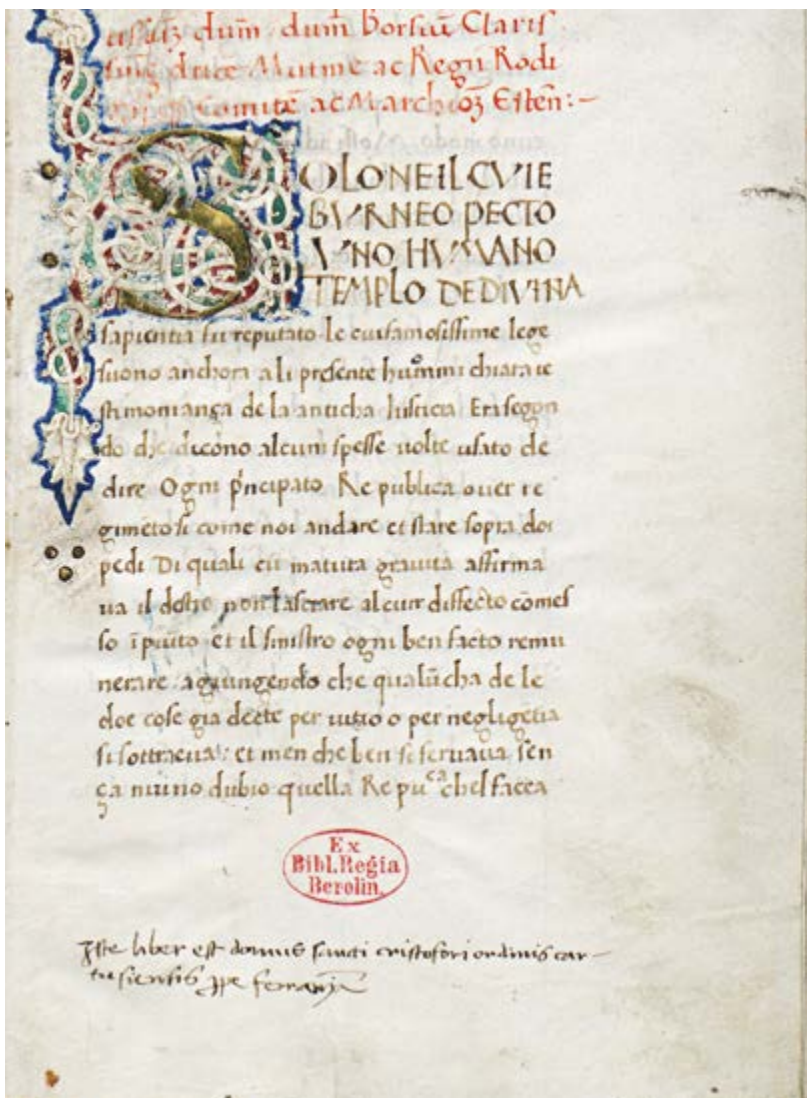 dum̄ . dum̄ Borsiū Claris
duce Mutine ac Regii Rodi
Comitē ac Marchioꝫ Esten̄:~
SOLONE IL CVI E
BVRNEO PECTO
VNO HVMANO
TEMPLO DE DIVINA
sapientia fu reputato le cui famosissime lege
suono anchora a li presente huomini chiara te
stimoniança de la anticha Iusticia Era segon
do che dicono alcuni spesse uolte usato de
dire Ogni pͥncipato Re publica ouer re
gimēto si come noi andare et stare sopra doi
pedi Di quali cū matura grauita affirma
ua il destro non lasciare alcun diffecto cōmes
so īpūito et il sinistro ogni ben facto remu
nerare . agiungendo che qualūcha de le
doe cose gia decte per uitio o per negligētia
si sottraeua: et men che ben si seruaua sen
ça niuno dubio quella Re puᶜᵃ chel facea
Ex
Bibl. Regia
Berolin.
Iste liber est domus sancti cristofori ordinis car-
tusiensis ꝓpe ferrariā